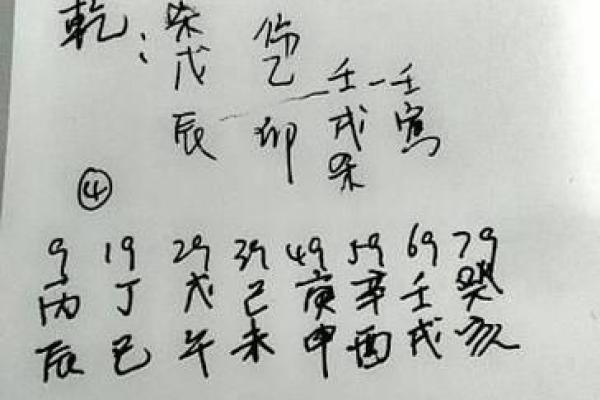 乾: 杀 伤
戊 乙 壬-壬
辰 卯 戌 寅
杀
④
9 19 29 39 49 59 69 79
丙 丁 戊 己 庚 辛 壬 癸
辰 巳 午 未 申 酉 戌 亥